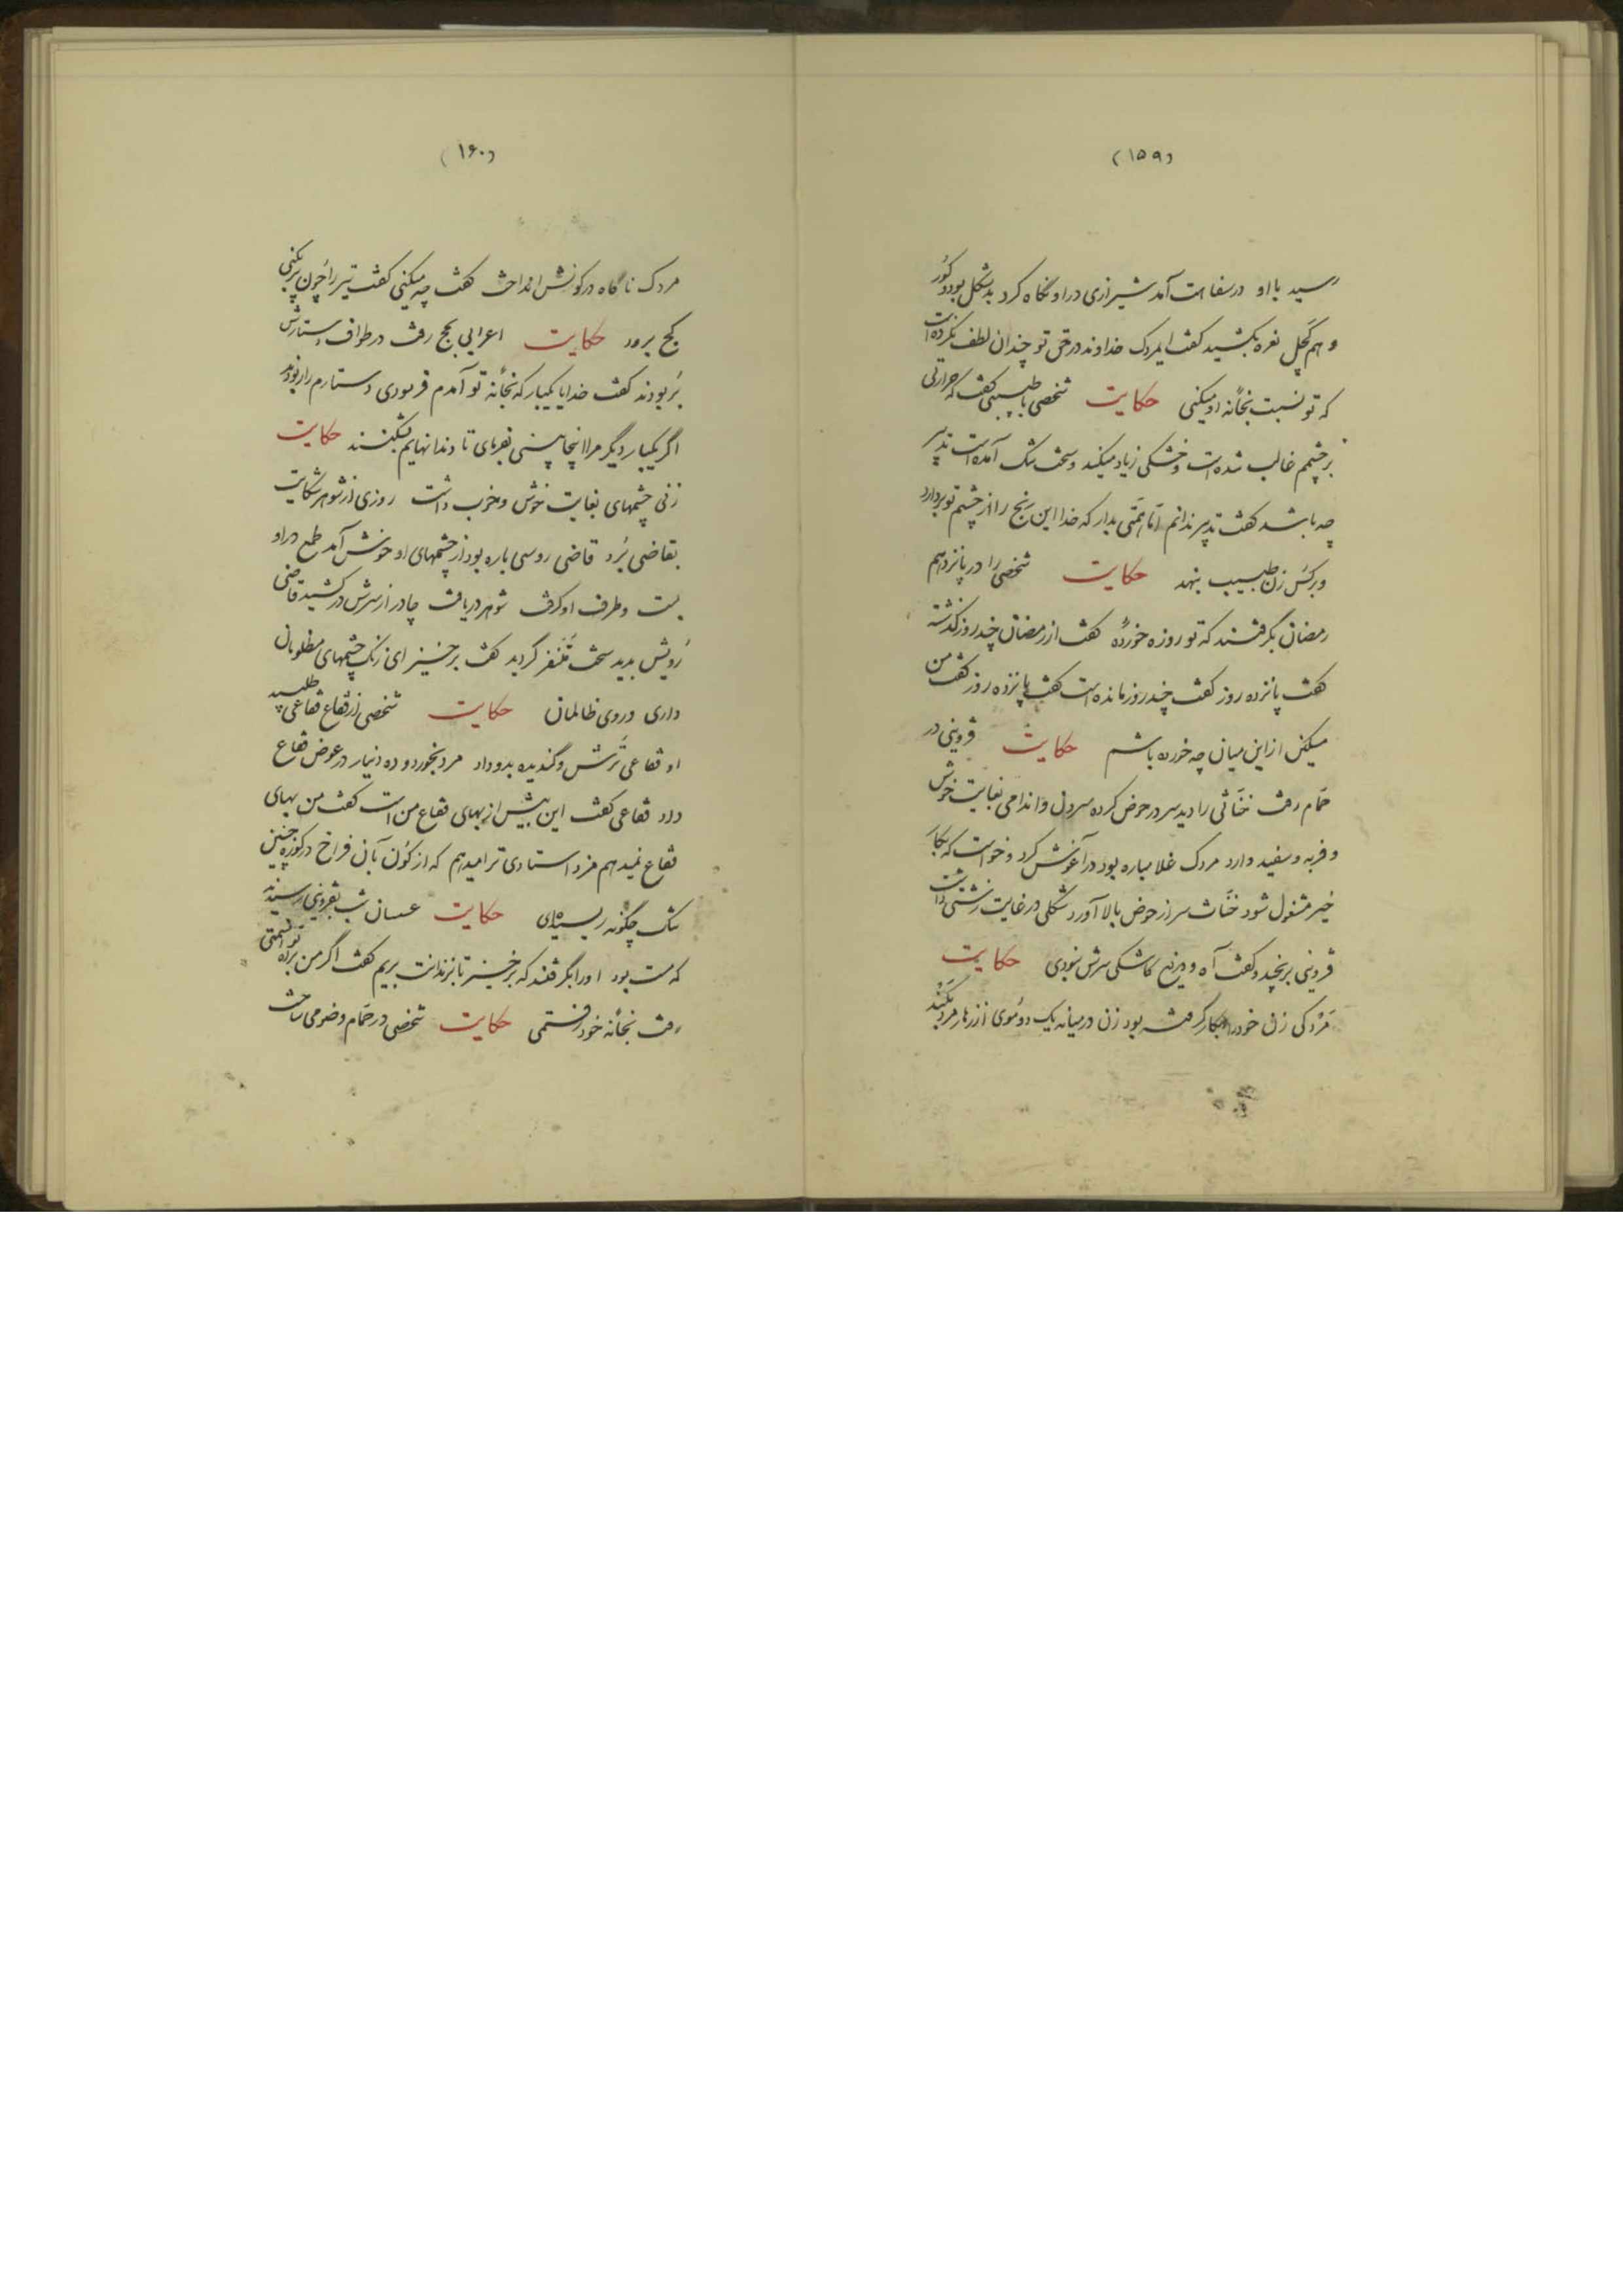 (۱۵۹)
رسید با او در سفاهت آمد شیرازی در او نگاه کرد بدشکل بود و کور
و هم کچل نعره بکشید کفت ایمردک خداوند در حق تو چندان لطف نکرده است
که تو نسبت بخانه او میکنی حکایت شخصی با طبیبی کفت که حرارتی
بر چشمم غالب شده است و خشکی زیاد میکند و سخت تنک آمده است تدبیر
چه باشد کفت تدبیر ندانم اما همتی بدار که خدا این رنج را از چشم تو بردارد
و بر کس زن طبیب بنهد حکایت شخصی را در پانزدهم
رمضان بگرفتند که تو روزه خورده کفت از رمضان چند روز کذشته
کفت پانزده روز کفت چند روز مانده است کفت پانزده روز کفت من
میکن از این میان چه خورده باشم حکایت قزوینی در
حمام رفت خناثی را دید سر در حوض کرده سر دل و اندامی بغایت خوش
و فربه و سفید دارد مردک غلامباره بود در آغوش کرد و خواست که بکار
خیر مشغول شود خناث سر از حوض بالا آورد شکلی در غایت زشتی داشت
قزوینی برنجید و کفت آه و دریغ کاشکی سرش نبودی حکایت
مردکی زن خود را بکار کرفته بود زن در میانه یک دو موی از زهار مرد بکند
(۱۶۰)
مردک ناگاه در کونش انداخت کفت چه میکنی کفت تیر را چون پر بکنی
کج برود حکایت اعرابی بحج رفت در طواف دستارش
بربودند کفت خدایا یکبار که بخانه تو آمدم فرمودی دستارم را ربودند
اگر یکبار دیگر مرا اینجا بینی بفرمای تا دندانهایم بشکنند حکایت
زنی چشمهای بغایت خوش و خوب داشت روزی از شوهر شکایت
بقاضی برد قاضی روسی باره بود از چشمهای او خوش آمد طمع در او
بست و طرف او کرفت شوهر دریافت چادر از سرش درکشید قاضی
رویش بدید سخت متنفر گردید کفت برخیز ای زنک چشمهای مظلومان
داری و روی ظالمان حکایت شخصی از فقاع فقاعی طلبید
او فقاعی ترش و گندیده بدو داد مرد بخورد و ده دینار در عوض فقاع
داد فقاعی کفت این بیش از بهای فقاع من است کفت من بهای
فقاع نمیدهم مزد استادی ترا میدهم که از کون بآن فراخ در کوزه چنین
تنک چگونه ریسته‌ای حکایت عسسان شب بقزوینی رسیدند
که مست بود او را بگرفتند که برخیز تا بزندانت بریم کفت اگر من براه توانستمی
رفت بخانه خود رفتمی حکایت شخصی در حمام وضو می ساخت